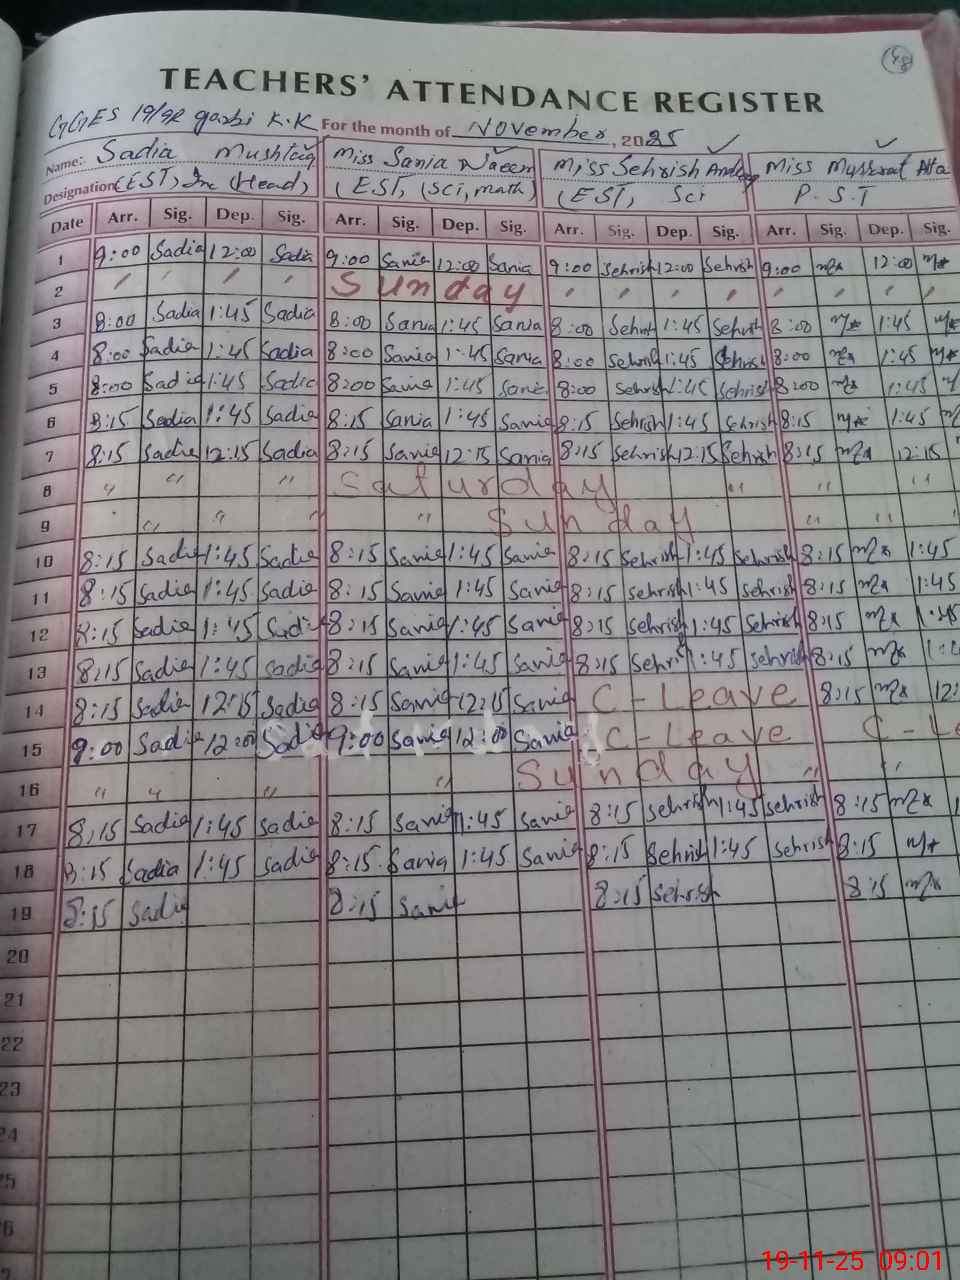 48
TEACHERS' ATTENDANCE REGISTER
GGES 19/9R gashi K.K For the month of November, 2025
Name: Sadia Mushtaq Miss Sania Naeem Miss Sehrish Miss Musserat Ata
Designation (EST, Inc (Head) (EST, (Sci, math) (EST, Sci P.S.T
Date Arr. Sig. Dep. Sig. Arr. Sig. Dep. Sig. Arr. Sig. Dep. Sig. Arr. Sig. Dep. Sig.
1 9:00 Sadia 12:00 Sadia 9:00 Sania 12:00 Sania 9:00 Sehrish 12:00 Sehrish 9:00 12:00
2 " " " " Sunday " " " " " " " "
3 8:00 Sadia 1:45 Sadia 8:00 Sania 1:45 Sania 8:00 Sehrish 1:45 Sehrish 8:00 1:45
4 8:00 Sadia 1:45 Sadia 8:00 Sania 1:45 Sania 8:00 Sehrish 1:45 Sehrish 8:00 1:45
5 8:00 Sadia 1:45 Sadia 8:00 Sania 1:45 Sania 8:00 Sehrish 1:45 Sehrish 8:00 1:45
6 8:15 Sadia 1:45 Sadia 8:15 Sania 1:45 Sania 8:15 Sehrish 1:45 Sehrish 8:15 1:45
7 8:15 Sadia 12:15 Sadia 8:15 Sania 12:15 Sania 8:15 Sehrish 12:15 Sehrish 8:15 12:15
8 " " " Saturday " " "
9 " " " " Sunday " " "
10 8:15 Sadia 1:45 Sadia 8:15 Sania 1:45 Sania 8:15 Sehrish 1:45 Sehrish 8:15 1:45
11 8:15 Sadia 1:45 Sadia 8:15 Sania 1:45 Sania 8:15 Sehrish 1:45 Sehrish 8:15 1:45
12 8:15 Sadia 1:45 Sadia 8:15 Sania 1:45 Sania 8:15 Sehrish 1:45 Sehrish 8:15 1:45
13 8:15 Sadia 1:45 Sadia 8:15 Sania 1:45 Sania 8:15 Sehrish 1:45 Sehrish 8:15
14 8:15 Sadia 12:15 Sadia 8:15 Sania 12:15 Sania C-Leave 8:15 12:
15 9:00 Sadia 12:00 Sadia 9:00 Sania 12:00 Sania C-Leave C-Le
16 " " " " Sunday " "
17 8:15 Sadia 1:45 Sadia 8:15 Sania 1:45 Sania 8:15 Sehrish 1:45 Sehrish 8:15
18 8:15 Sadia 1:45 Sadia 8:15 Sania 1:45 Sania 8:15 Sehrish 1:45 Sehrish 8:15
19 8:15 Sadia 8:15 Sania 8:15 Sehrish 8:15
20
21
22
23
24
25
26
19-11-25 09:01